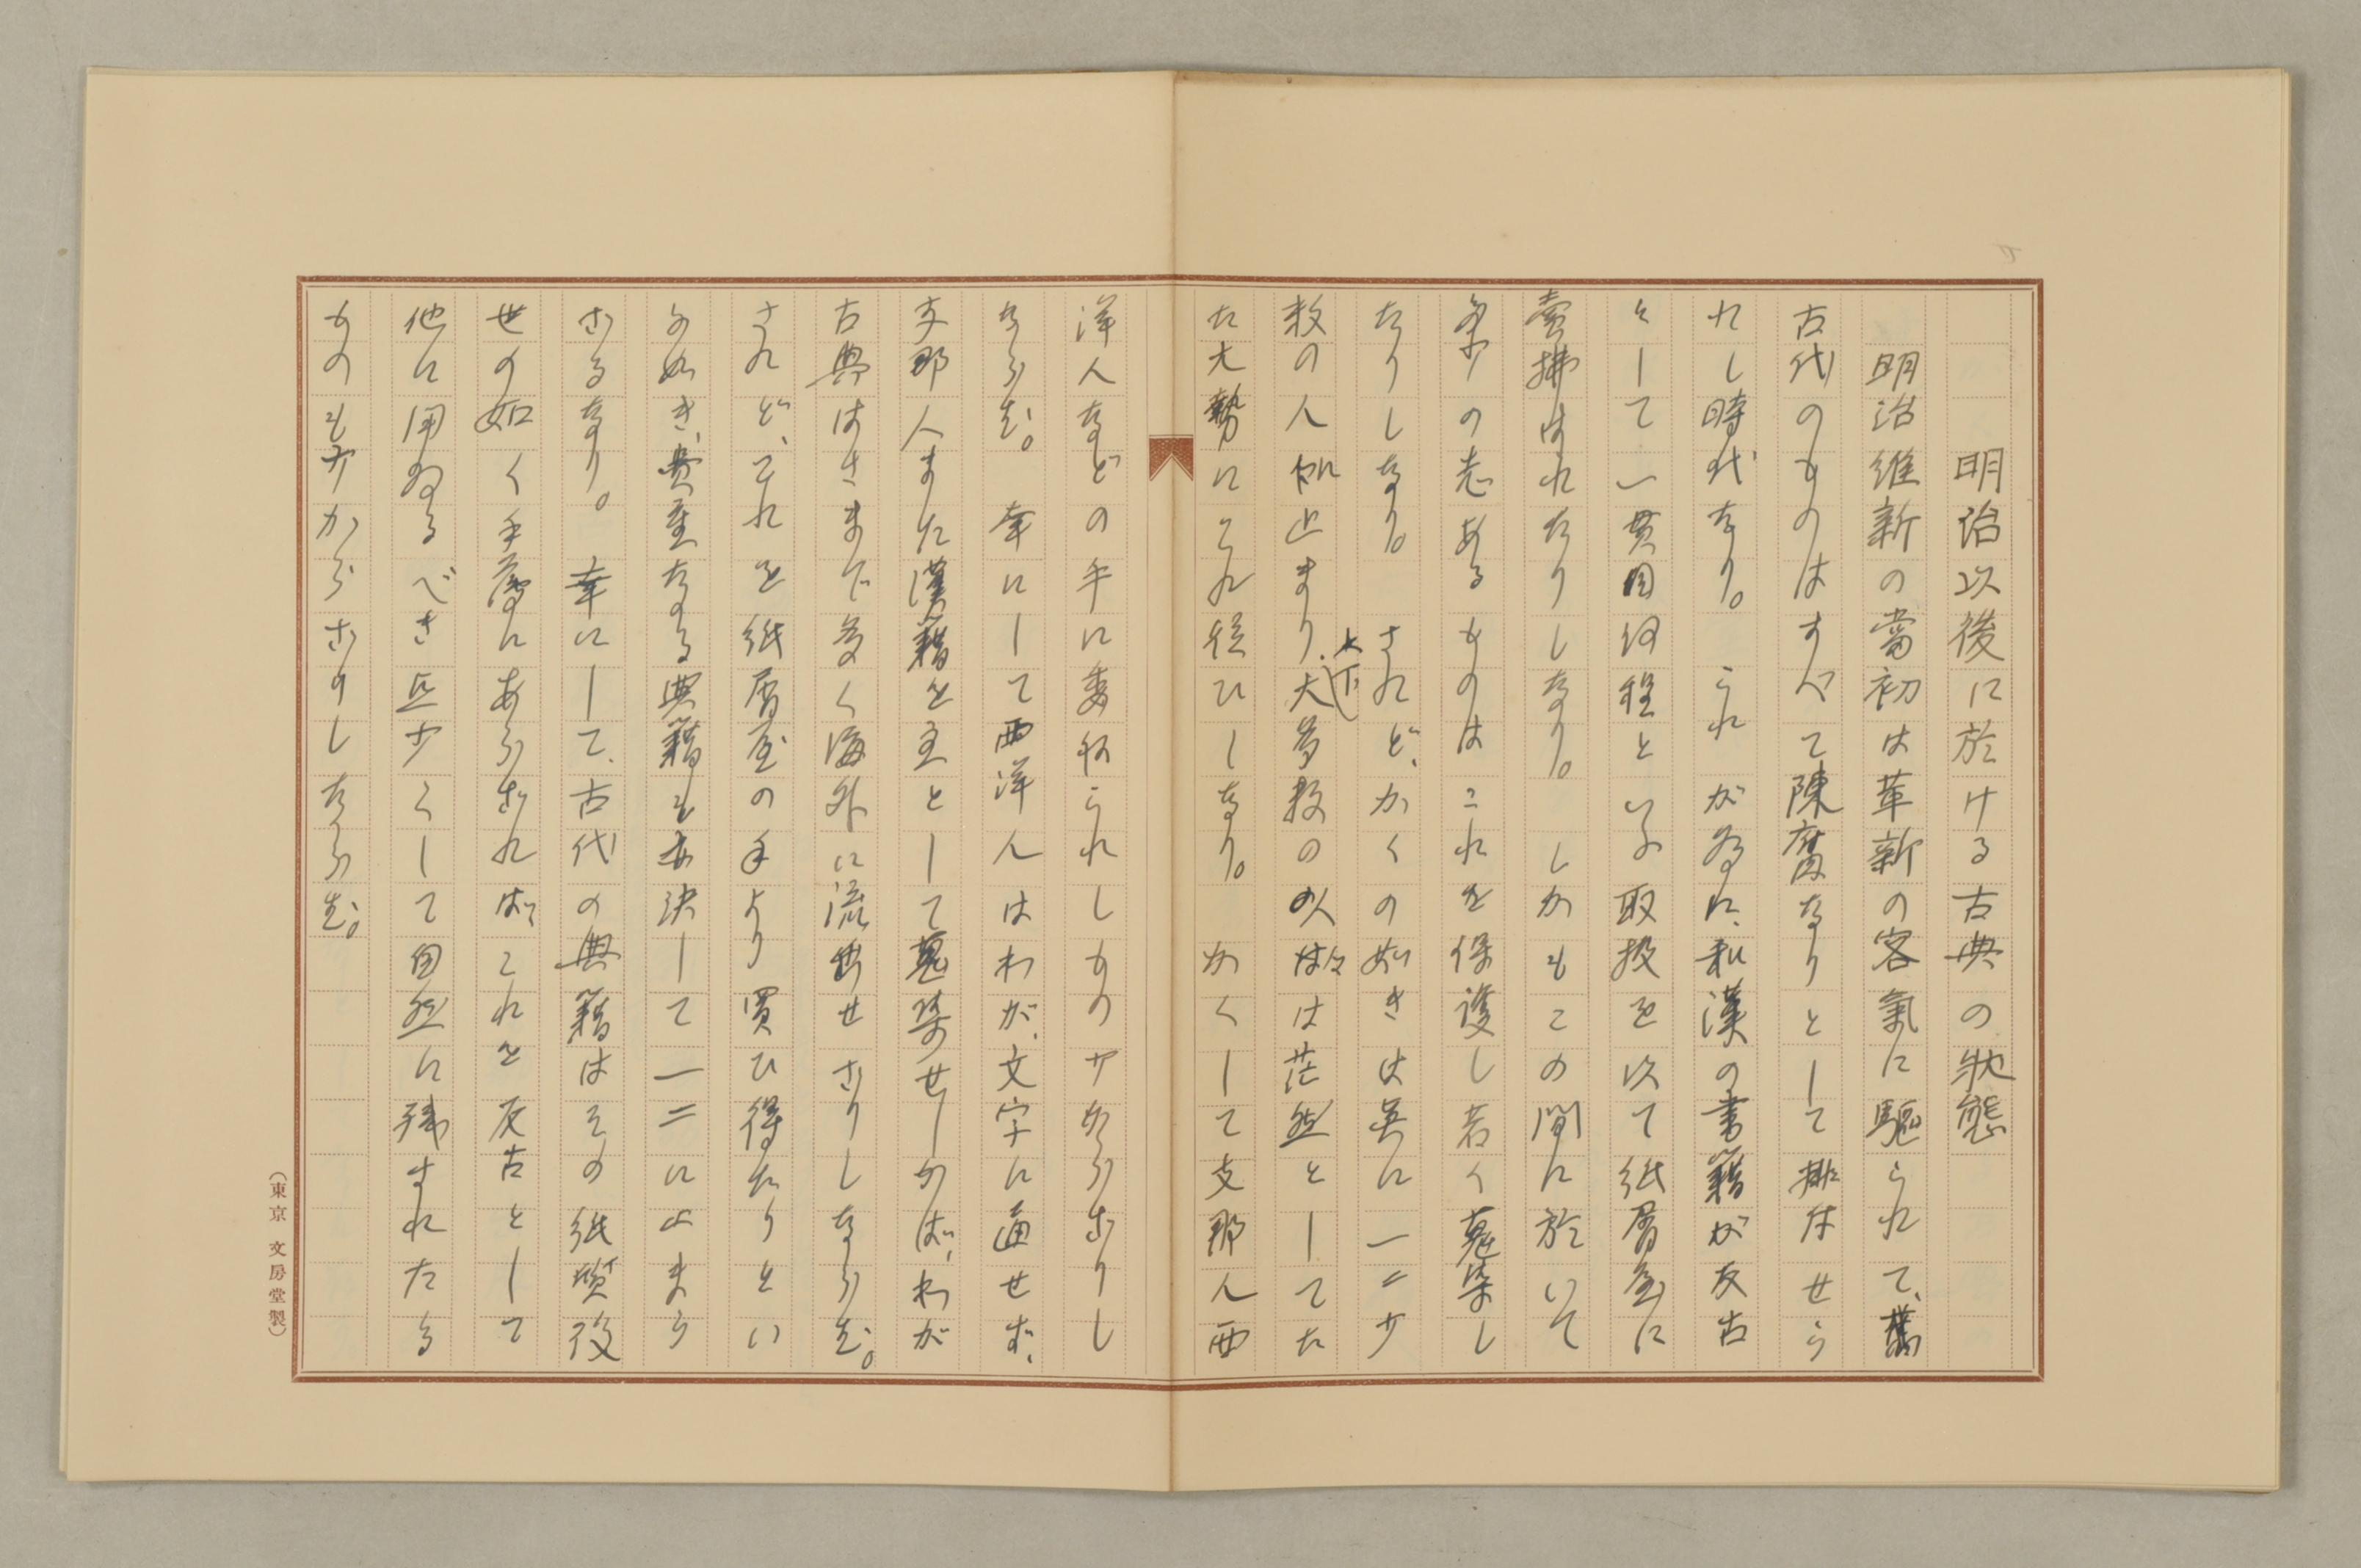 明治以後に於ける古典の状態
明治維新の當初は革新の客氣に驅られて、舊
古代のものはすべて陳腐なりとして排斥せら
れし時代なり。これが為に、和漢の書籍が反古
として一貫目何程といふ取扱を以て紙屑屋に
賣拂はれたりしなり。しかもこの間に於いて
多少の志あるものはこれを保護し若く蒐集し
たりしなり。されど、かくの如きは実に一二少
数の人に止まり、大多数の人々は茫然としてた
天下
た大勢にこれ従ひしなり。かくして支那人西
洋人などの手に委ねられしもの少からざりし
ならむ。幸にして西洋人はわが文字に通せず、
支那人また漢籍を主として蒐集せしかば、わが
古典はさまで多く海外に流出せざりしならむ。
されど、これを紙屑屋の手より買ひ得たりとい
ふ如き、貴重なる典籍も亦決して一二に止まら
ざるなり。幸にして、古代の典籍はその紙質後
世の如く手薄にあらざれば、これを反古として
他に用ゐるべき途少くして自然に残されたる
ものも少からざりしならむ。
(東京 文房堂製)